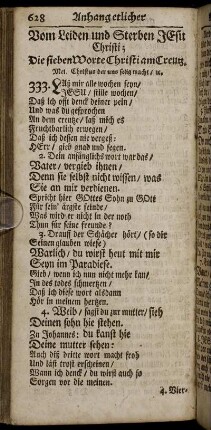 628 Anhang etlicher
Vom Leiden und Sterben JEsu
Christi;
Die sieben Worte Christi am Creutz.
Mel. Christus der uns selig macht / ꝛc.
333. Laß mir alle wochen seyn /
JESU / stille wochen /
Daß ich offt denck deiner pein /
Und was du gesprochen
An dem creutze / laß mich es
Fruchtbarlich erwegen /
Daß ich dessen nie vergeß:
HErr / gieb gnad und segen.
2. Dein anfänglichs wort war das /
Vater / vergieb ihnen /
Denn sie selbst nicht wissen / was
Sie an mir verdienen.
Spricht hier GOttes Sohn zu GOtt
Für sein' ärgste feinde /
Was wird er nicht in der noth
Thun für seine freunde?
3. Drauff der Schächer hört / (so dir
Seinen glauben wiese)
Warlich / du wirst heut mit mir
Seyn im Paradiese.
Gieb / wenn ich nun nicht mehr kan /
In des todes schmertzen /
Daß ich diese wort alsdann
Hör in meinem hertzen.
4. Weib / sagst du zur mutter / sieh
Deinen sohn hie stehen.
Zu Johannes: du kanst hie
Deine mutter sehen:
Auch diß dritte wort macht froh
Und läst trost erscheinen /
Wann ich denck / du wirst auch so
Sorgen vor die meinen.
4. Vier-